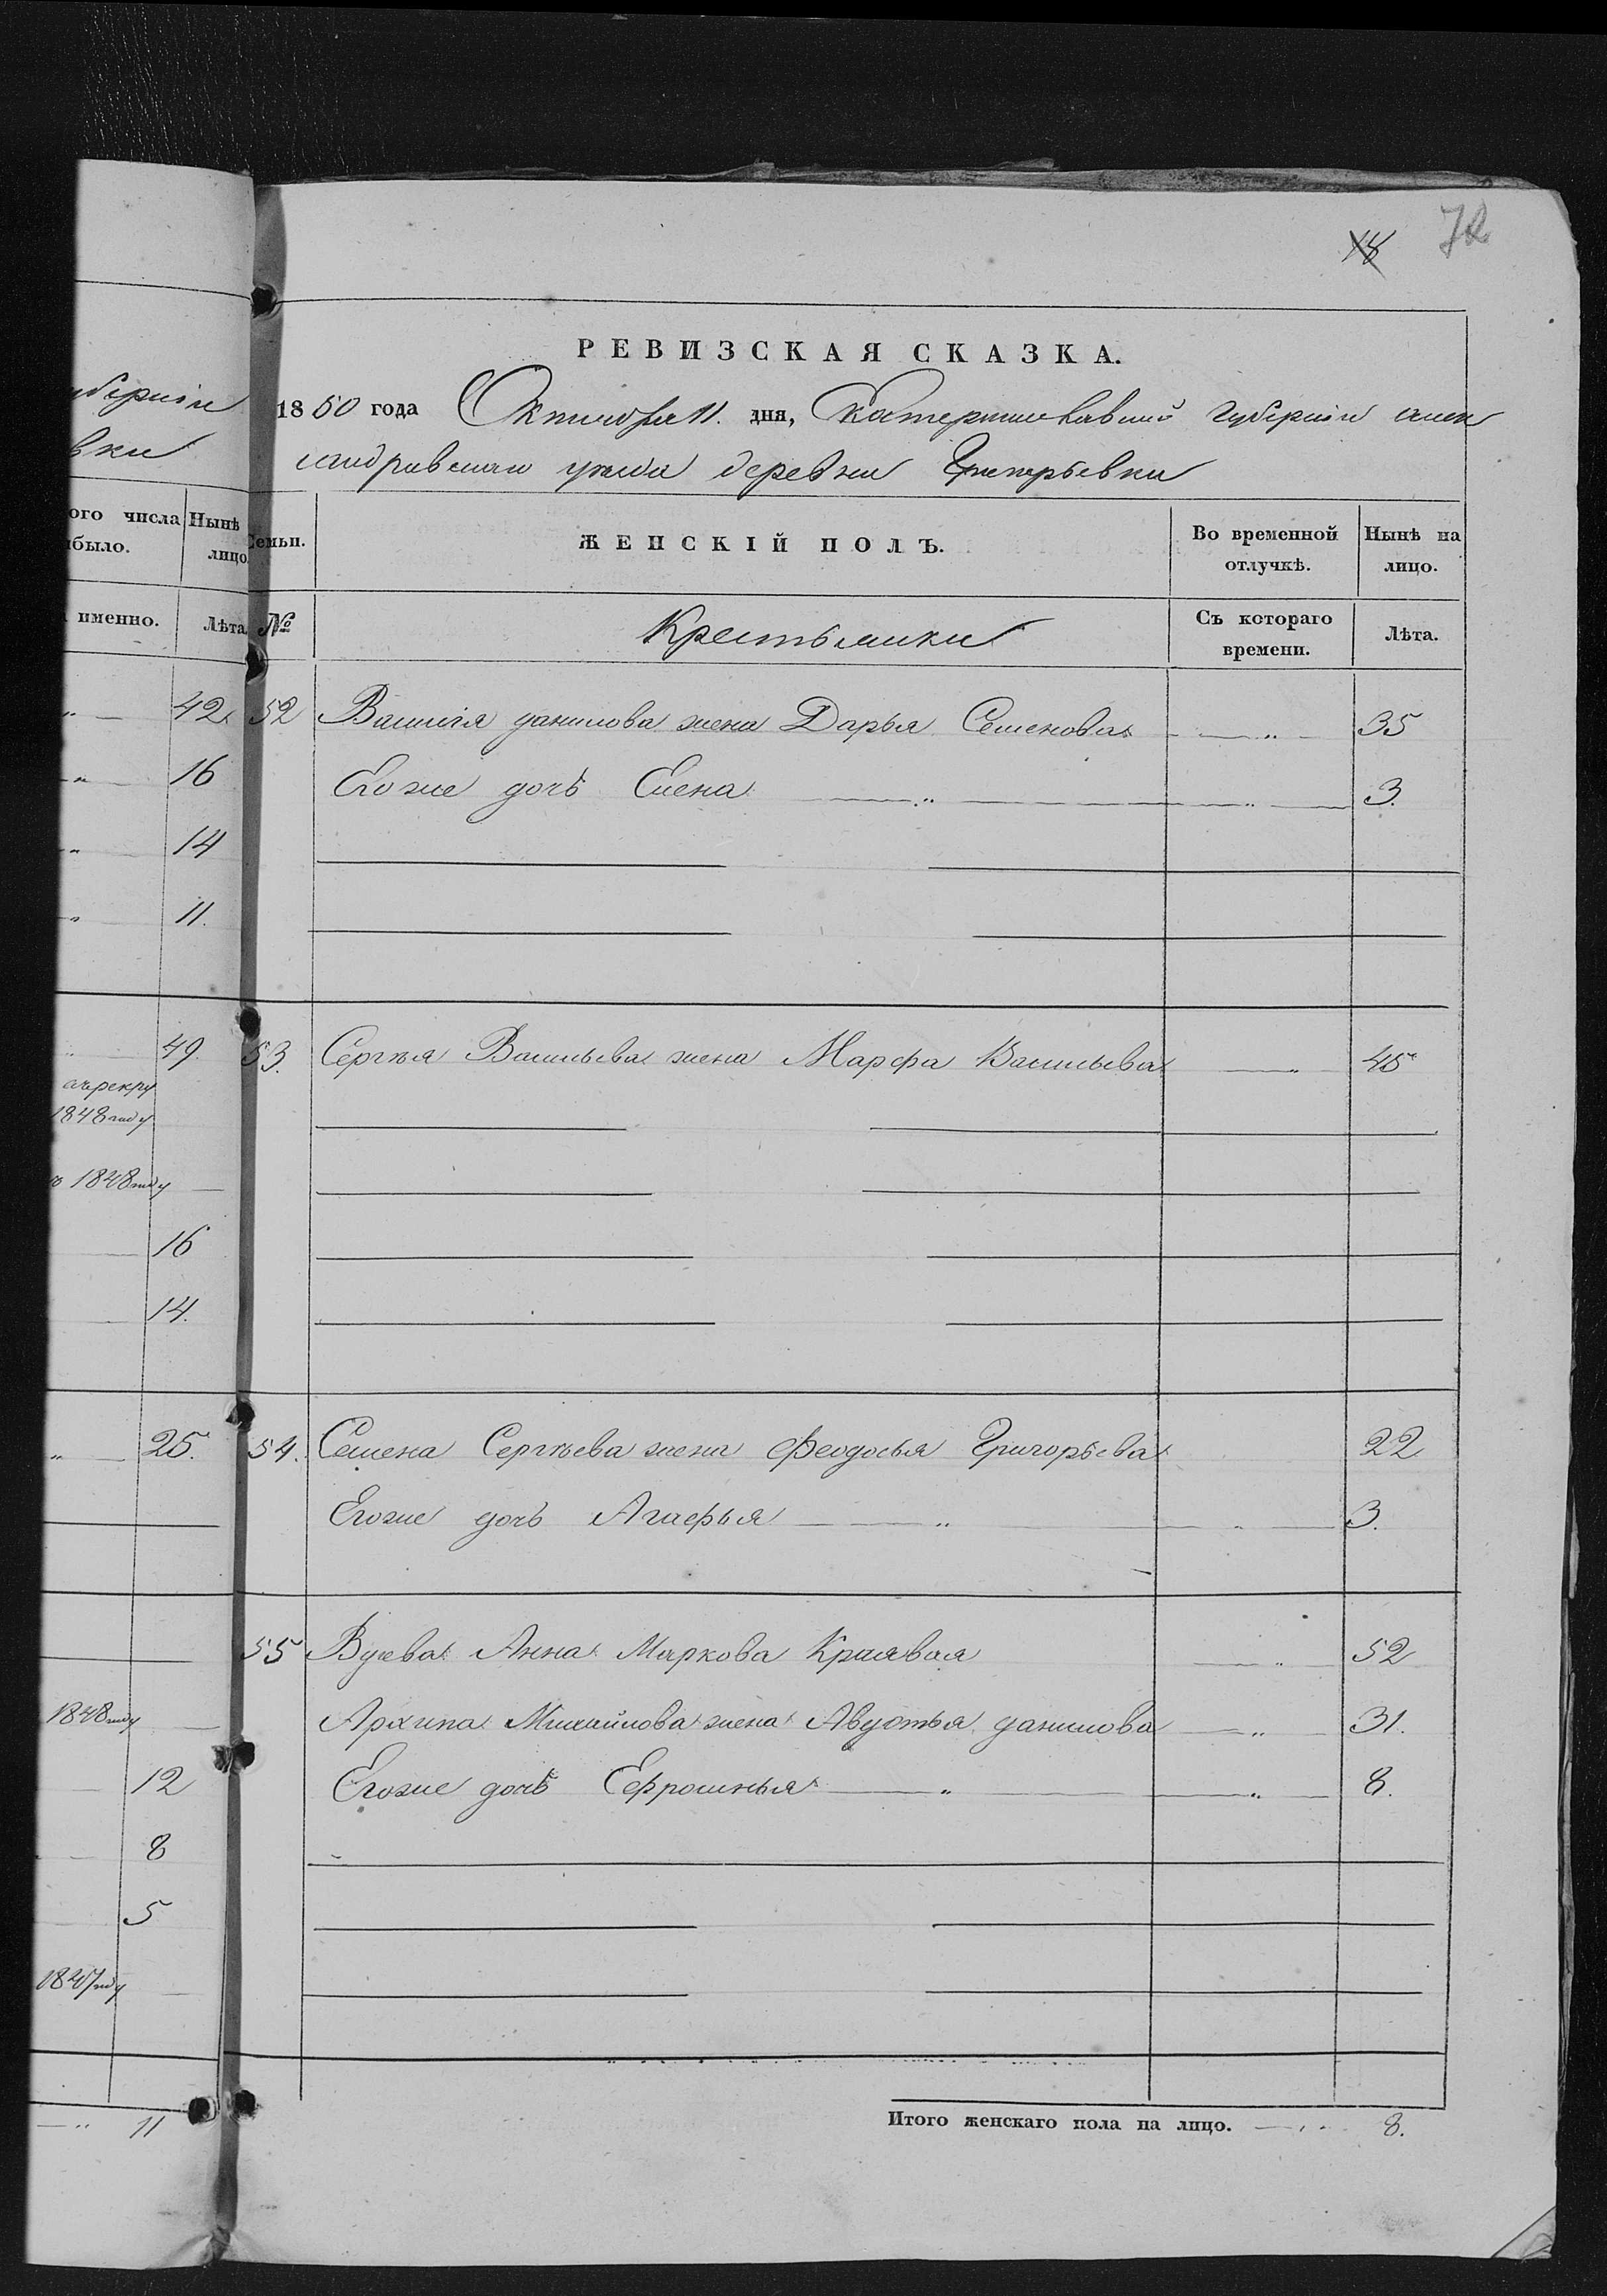 18 72
РЕВИЗСКАЯ СКАЗКА.
уберніи
1850 года Октября 11. дня, Екатеринославской губерніи алек
вки
сандровскаго уезда деревни Григорьевки
ого числа Нынѣ
было. лицо
именно. Лѣта
Семьи. ЖЕНСКІЙ ПОЛЪ. Во временной отлучкѣ. Нынѣ на лицо.
№ Крестьянки Съ котораго времени. Лѣта.
42 52 Василія данилова жена Дарья Семенова 35
16 Егоже дочь Елена 3.
14
11.
49. 53. Сергѣя Васильева жена Марфа Васильева 45
1848 году
1848 году
16
14.
25. 54. Семена Сергѣева жена Феодосья Григорьева 22
Егоже дочь Агафья 3.
55 Вдова Анна Маркова 52
1848 году Архипа Михайлова жена Авдотья данилова 31.
12 Егоже дочь Ефросинья 8.
8
5
1847 году
11 Итого женскаго пола на лицо. 8.